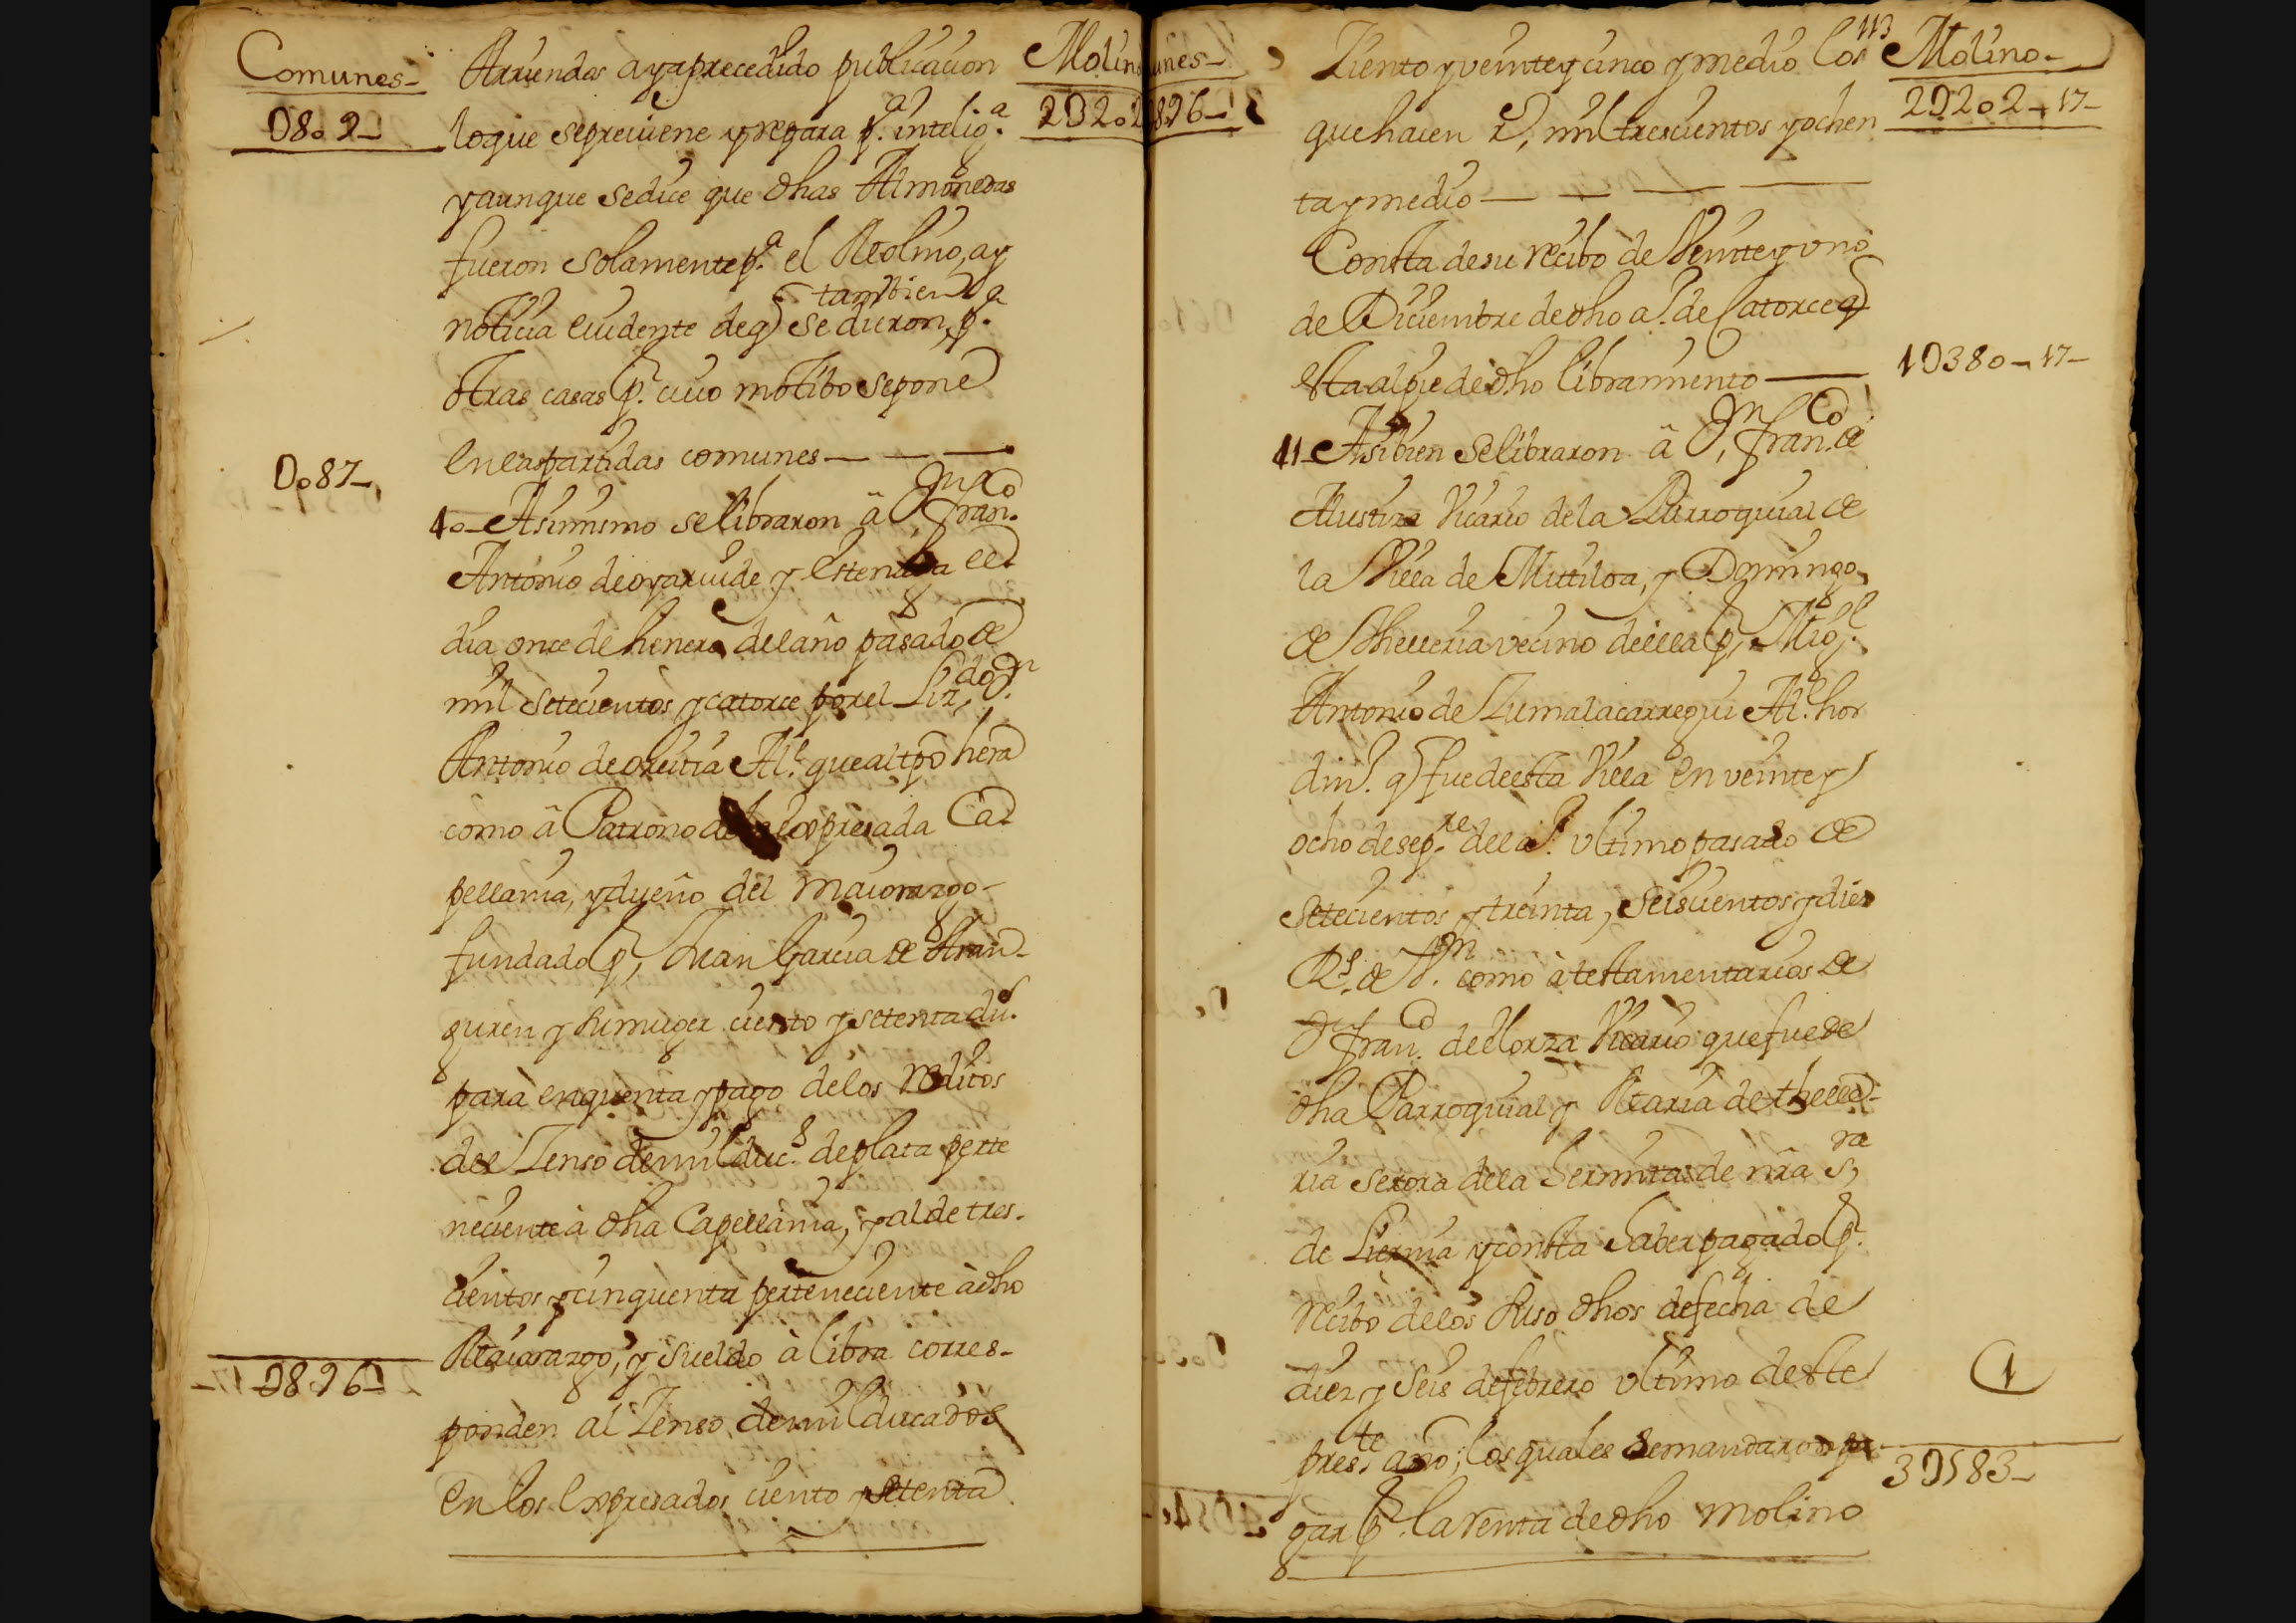 Comunes-
D802-
Arriendos ayaprecedido publicacion
loque sepreuiene yregara p.ª intelig.ª
yaunque sedice que dhas Almonedas
fueron solamente p.ª el Molino, ay
tambien
noticia euidente deq se dieron, p.ª
otras casas p.r cuio motibo sepone
enlaspartidas comunes — — —
D087-
40-Asimismo selibraron â D.n Fran.co
Antonio deoyaruide y Estenaga eel
dia once de henero delaño pasado de
mil setecientos ycatorce porel Liz.do D.n
Antonio deoreitia Al.e quealtpo hera
como â Patrono dela expresada Ca-
pellania, ydueño del maiorazgo-
fundado p.r Juan Garcia de Aran-
guren y sumuger ciento y setenta du.s
para enquenta ypago delos reditos
del Zenso demil duc.s deplata perte
neciente à dha Capellania, y al de tres-
cientos ycinquenta perteneciente àdho
Maiorazgo, y sueldo à libra corres-
ponden al Zenso demil ducados
en los expresados ciento ysetenta
D896-
Molino
2D202
unes-
896-
113
Molino-
2D202-17-
Ziento yveinteycinco ymedio los
quehacen R.s mil trescientos yochen
taymedio — — — —
Consta desu recibo de Veinteyuno
de Diciembre dedho a.o de Catorce q
esta alpie dedho libramiento —
1D380-17-
41-Asibien selibraron â D.n Fran.co de
Alustiza Vicario dela Parroquial de
la Villa de Mutiloa, y Domingo
de Thelleria vecino deella p.r Mig.l
Antonio de Zumalacarregui Al.e hor
din.o q fue deesta Villa en veintey
ocho de sep.re del a.o vltimo pasado de
Setecientos ytreinta, seiscientos ydiez
R.s de V.n como à testamentarios de
D.n Fran.co deElorza Vicario quefuede
dha Parroquial y Maria dethelle-
ria serora dela hermita de nra S.ra
de Liernia yconsta haber pagado p.r
recibo delos suso dhos defecha de
diez y seis defebrero vltimo deste
pres.te año; los quales semandaron pa-
gar p.r larenta dedho molino
1
3D583-